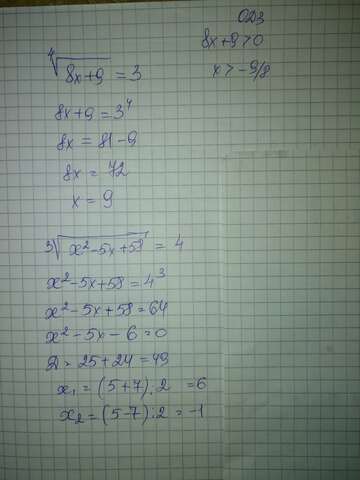 ОДЗ
8x+9>0
x>-9/8
⁴√8x+9 = 3
8x+9=3⁴
8x = 81-9
8x = 72
x = 9
³√x²-5x+58 = 4
x²-5x+58=4³
x²-5x+58=64
x²-5x-6=0
D=25+24=49
x₁=(5+7):2=6
x₂=(5-7):2=-1